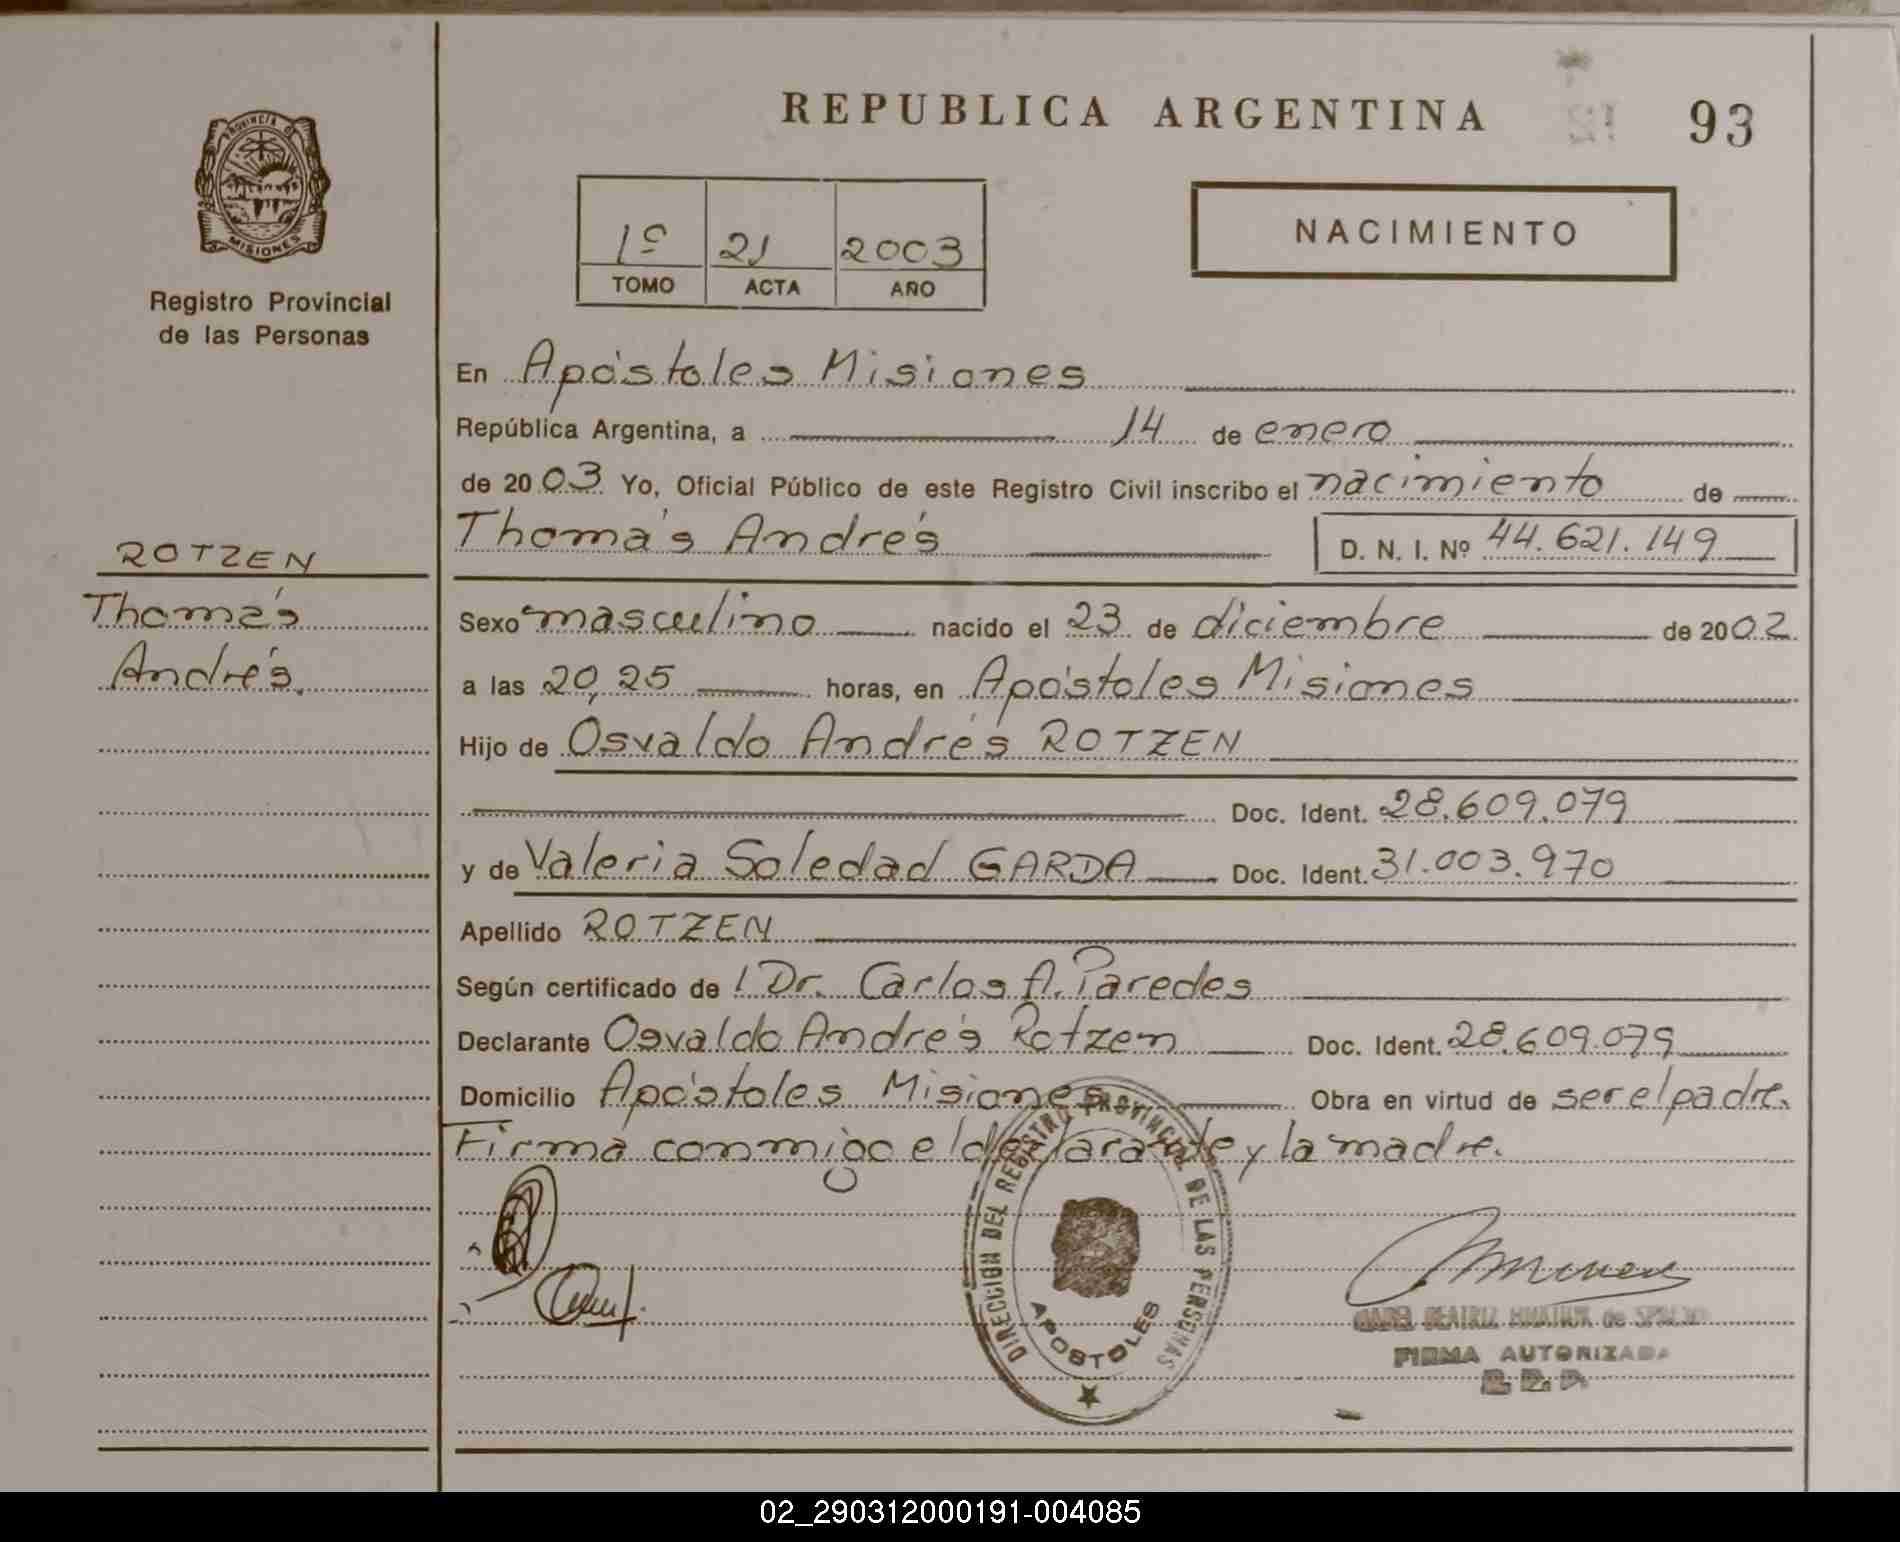 REPUBLICA ARGENTINA
93
PROVINCIA DE
MISIONES
Registro Provincial
de las Personas
1º 21 2003
TOMO ACTA AÑO
NACIMIENTO
En Apóstoles Misiones
República Argentina, a 14 de enero
de 2003 Yo, Oficial Público de este Registro Civil inscribo el nacimiento de
Thomás Andrés D. N. I. Nº 44.621.149
ROTZEN
Thomás
Andrés.
Sexo masculino nacido el 23 de diciembre de 2002
a las 20,25 horas, en Apóstoles Misiones
Hijo de Osvaldo Andrés ROTZEN
Doc. Ident. 28.609.079
y de Valeria Soledad GARDA Doc. Ident. 31.003.970
Apellido ROTZEN
Según certificado de l Dr. Carlos A. Paredes
Declarante Osvaldo Andrés Rotzen Doc. Ident. 28.609.079
Domicilio Apóstoles Misiones Obra en virtud de ser el padre.
Firma conmigo el declarante y la madre.
DIRECCION DEL REGISTRO PROVINCIAL DE LAS PERSONAS
APOSTOLES
BEATRIZ de
FIRMA AUTORIZADA
02_290312000191-004085